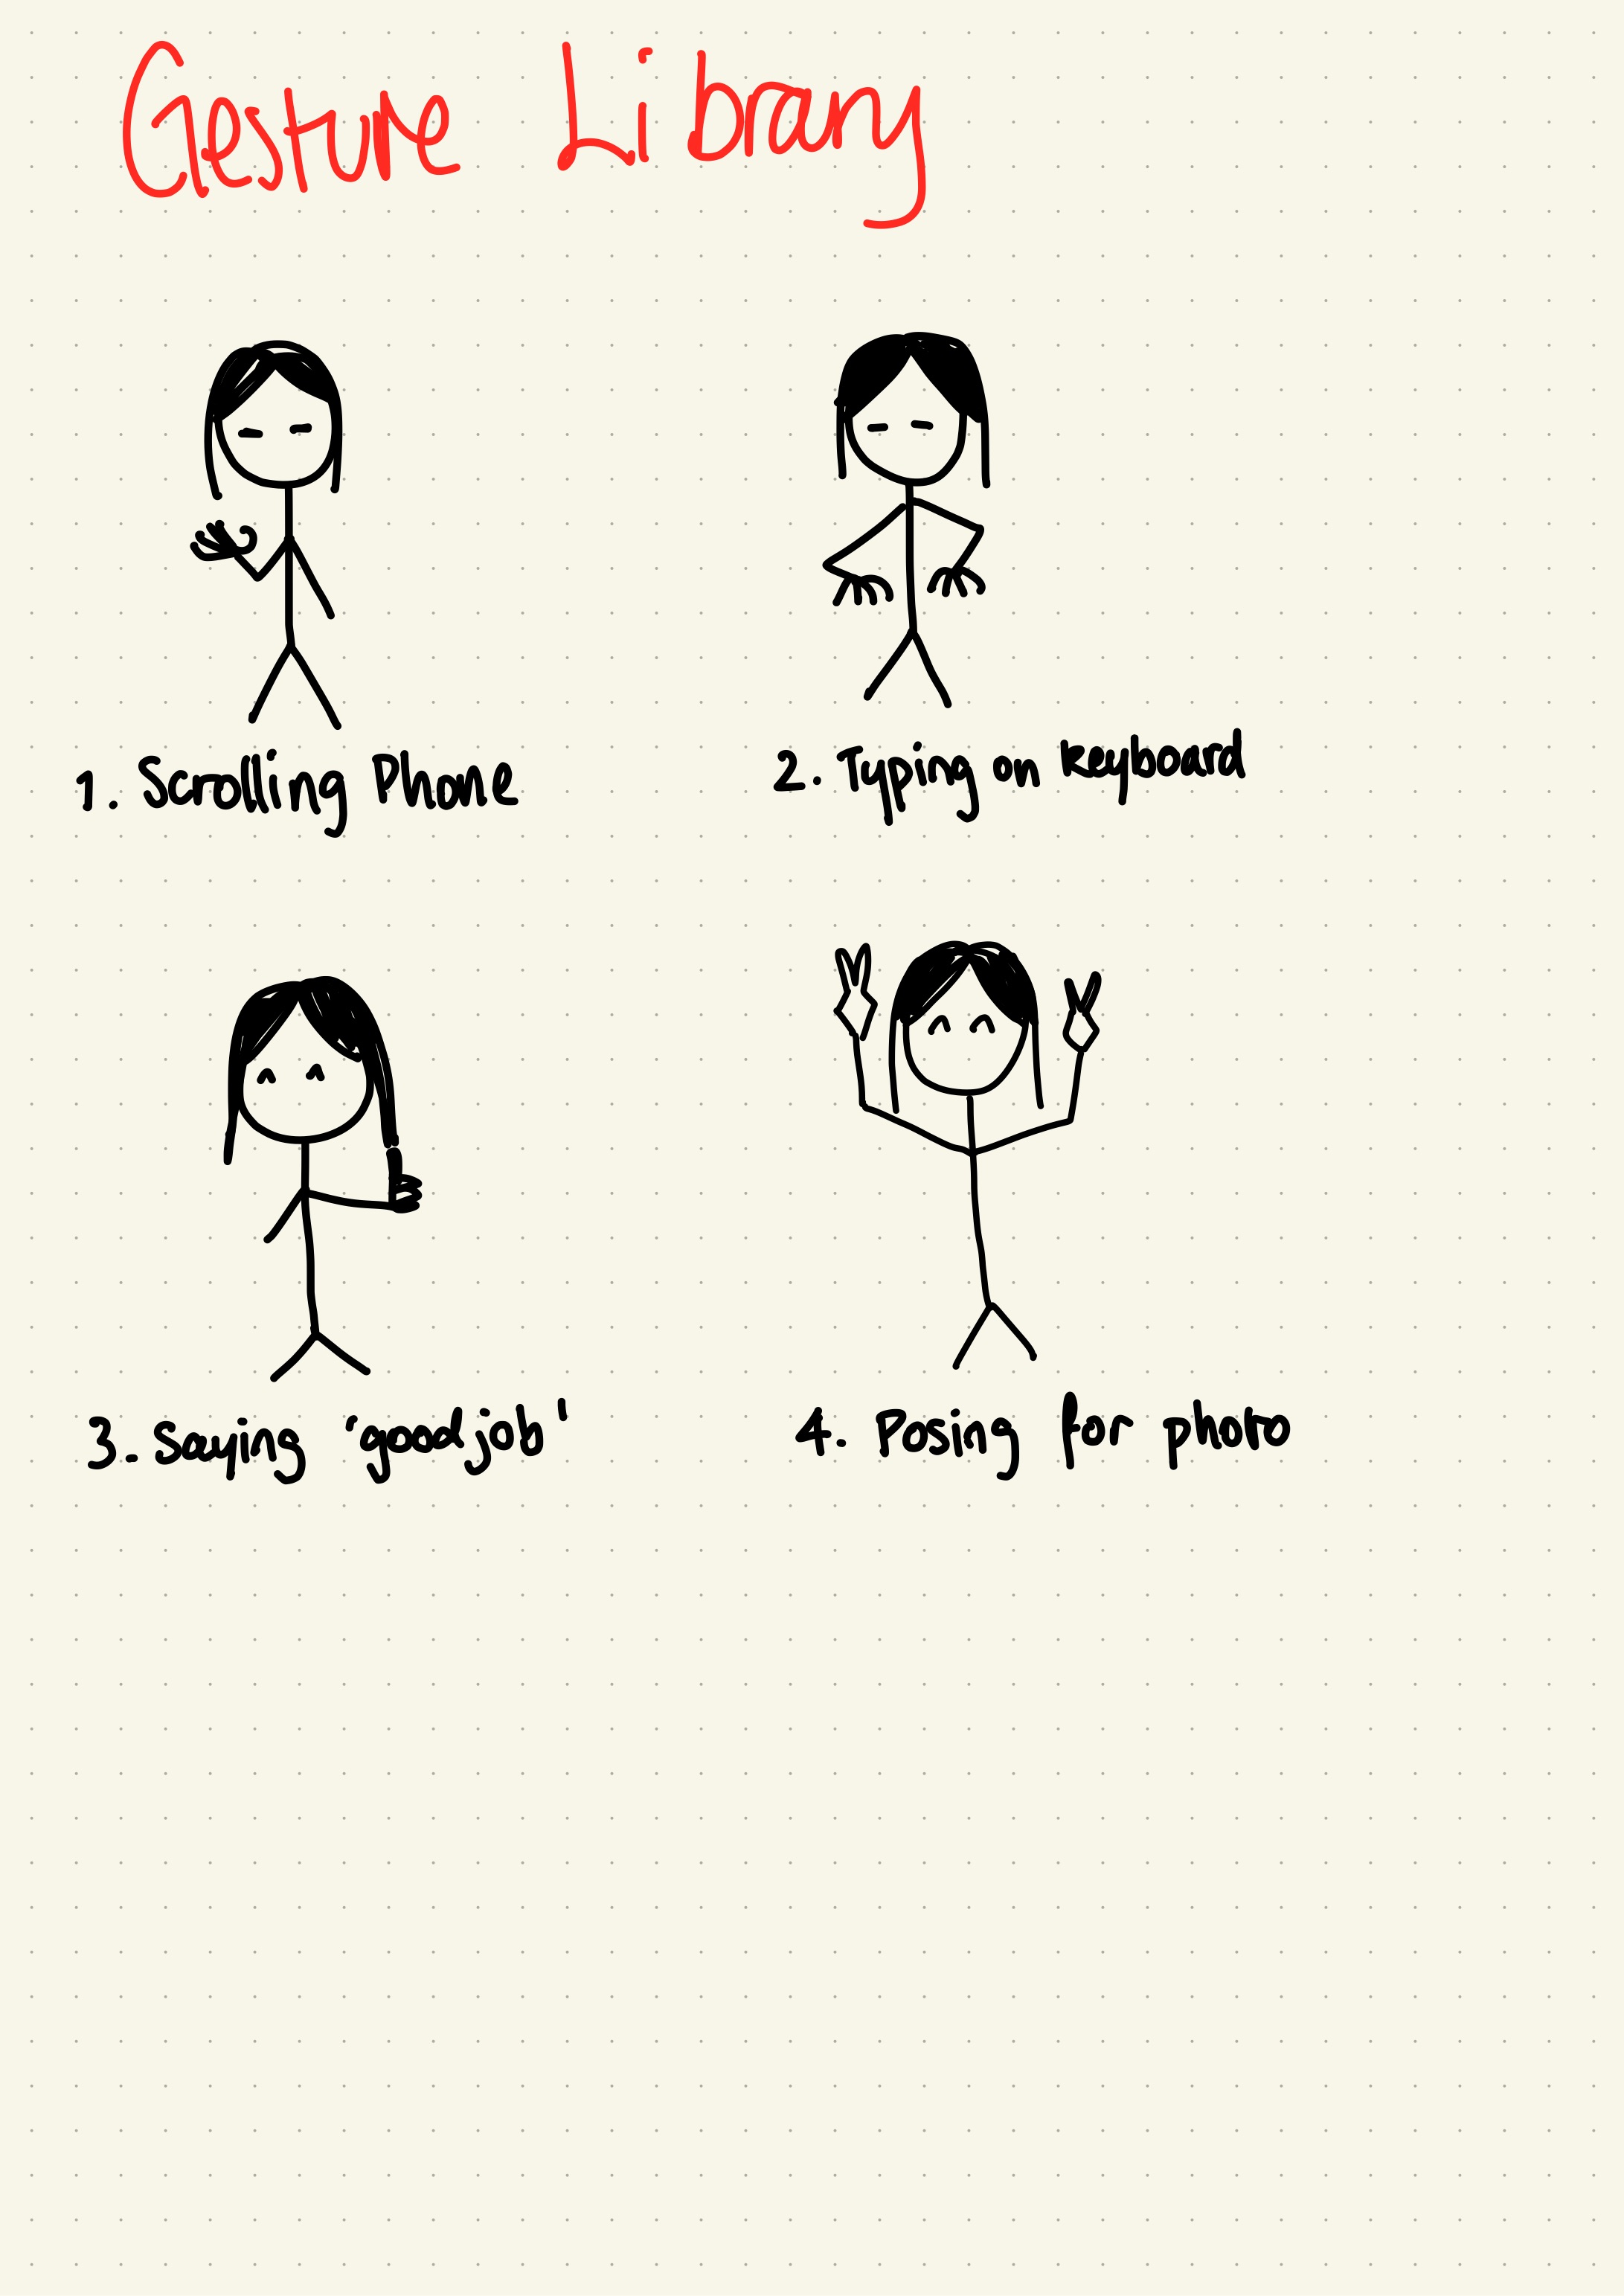 Gesture Library
1. Scrolling Phone
2. Typing on keyboard
3. Saying 'good job'
4. Posing for photo